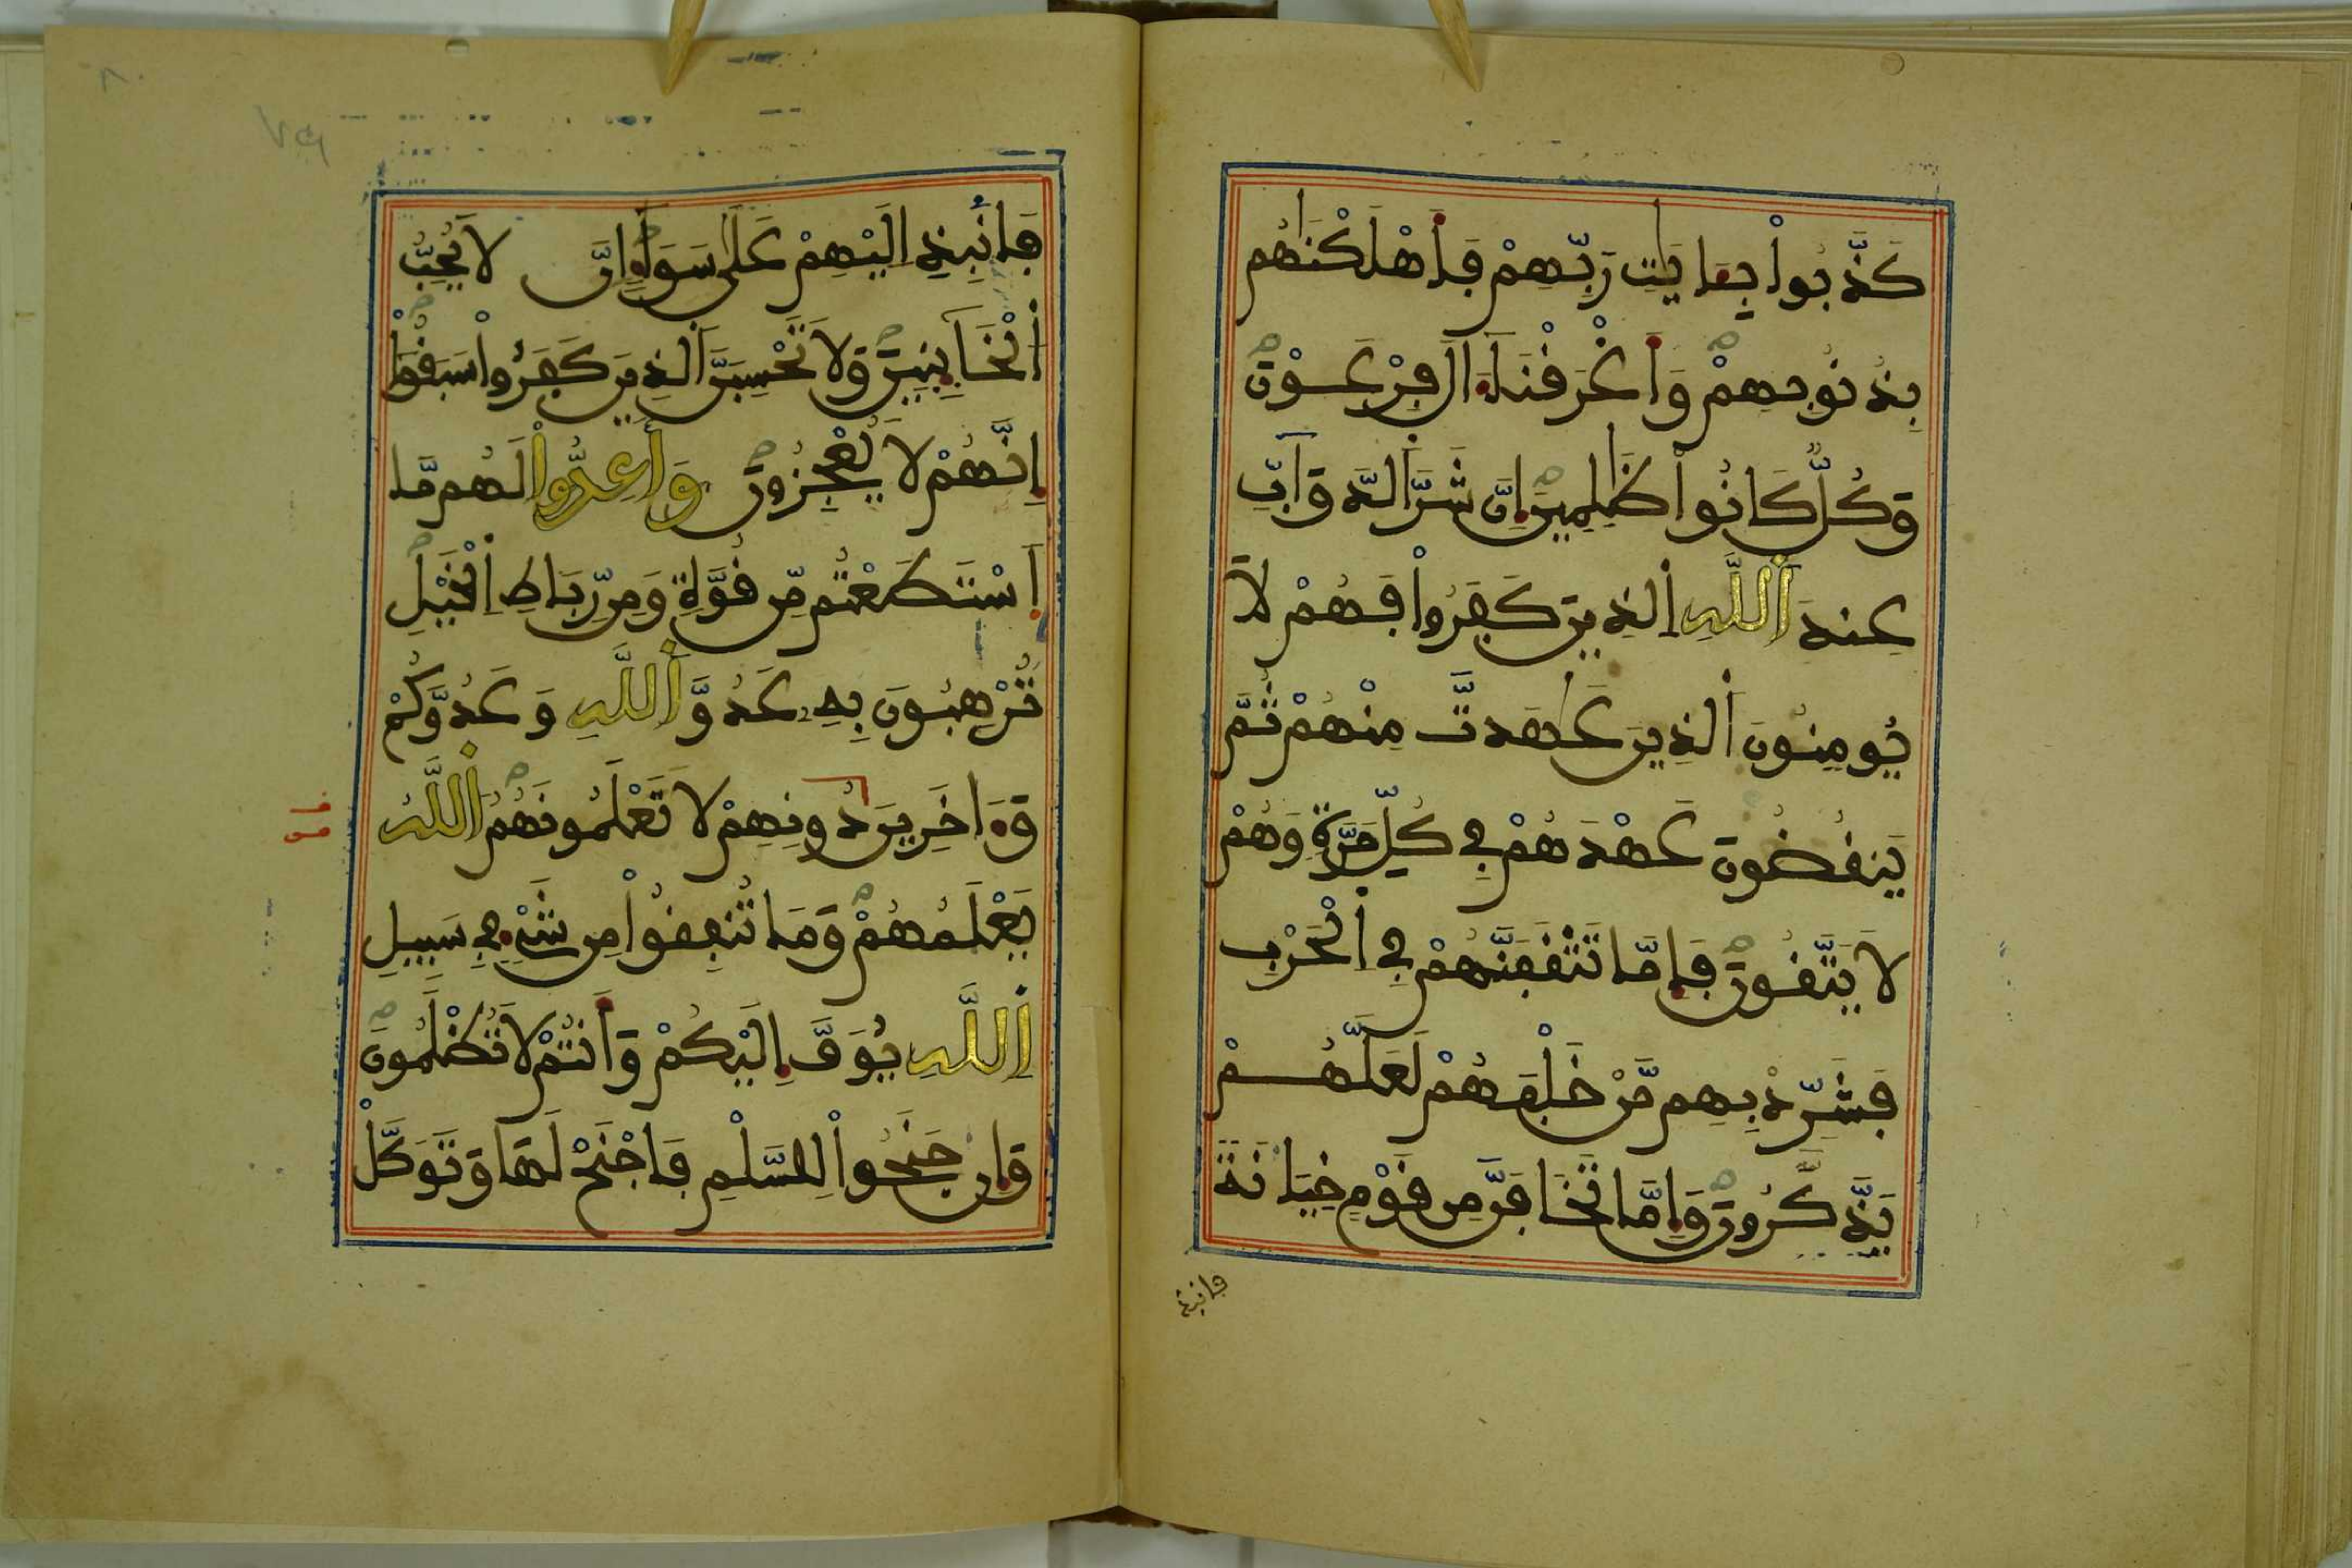 كَذَّبُواْ بِـَٔايَٰتِ رَبِّهِمْ فَأَهْلَكْنَٰهُم
بِذُنُوبِهِمْ وَأَغْرَقْنَآ ءَالَ فِرْعَوْنَ
وَكُلٌّ كَانُواْ ظَٰلِمِينَ إِنَّ شَرَّ اَلدَّوَآبِّ
عِندَ اَللَّهِ اِلذِينَ كَفَرُواْ فَهُمْ لَا
يُومِنُونَ اَلذِينَ عَٰهَدتَّ مِنْهُمْ ثُمَّ
يَنقُضُونَ عَهْدَهُمْ فِي كُلِّ مَرَّةٍ وَهُمْ
لَا يَتَّقُونَ فَإِمَّا تَثْقَفَنَّهُمْ فِي اِلْحَرْبِ
فَشَرِّدْ بِهِم مَّنْ خَلْفَهُمْ لَعَلَّهُمْ
يَذَّكَّرُونَ وَإِمَّا تَخَافَنَّ مِن قَوْمٍ خِيَانَةً
فانبذ
فَانْبِذِ اِلَيْهِمْ عَلَىٰ سَوَآءٍ اِنَّ لَا يُحِبُّ
اَلْخَآئِنِينَ وَلَا تَحْسِبَنَّ اَلذِينَ كَفَرُواْ سَبَقُواْ
إِنَّهُمْ لَا يُعْجِزُونَ وَأَعِدُّواْ لَهُم مَّا
اَسْتَطَعْتُم مِّن قُوَّةٍ وَمِن رِّبَاطِ اِلْخَيْلِ
تُرْهِبُونَ بِهِ عَدُوَّ اَللَّهِ وَعَدُوَّكُمْ
وَءَاخَرِينَ مِن دُونِهِمْ لَا تَعْلَمُونَهُمُ اَللَّهُ
يَعْلَمُهُمْ وَمَا تُنفِقُواْ مِن شَيْءٍ فِي سَبِيلِ
اِللَّهِ يُوَفَّ إِلَيْكُمْ وَأَنتُمْ لَا تُظْلَمُونَ
وَإِن جَنَحُواْ لِلسَّلْمِ فَاجْنَحْ لَهَا وَتَوَكَّلْ